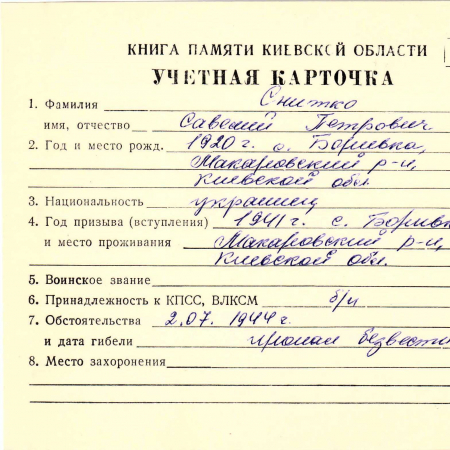 КНИГА ПАМЯТИ КИЕВСКОЙ ОБЛАСТИ
УЧЕТНАЯ КАРТОЧКА
1. Фамилия Снитко
имя, отчество Савелий Петрович
2. Год и место рожд. 1920 г. с. Боривка,
Макаровский р-н,
Киевской обл.
3. Национальность украинец
4. Год призыва (вступления) 1941 г. с. Борив
и место проживания Макаровский р-н,
Киевской обл.
5. Воинское звание
6. Принадлежность к КПСС, ВЛКСМ б/п
7. Обстоятельства 2.07. 1944 г.
и дата гибели пропал безвести
8. Место захоронения